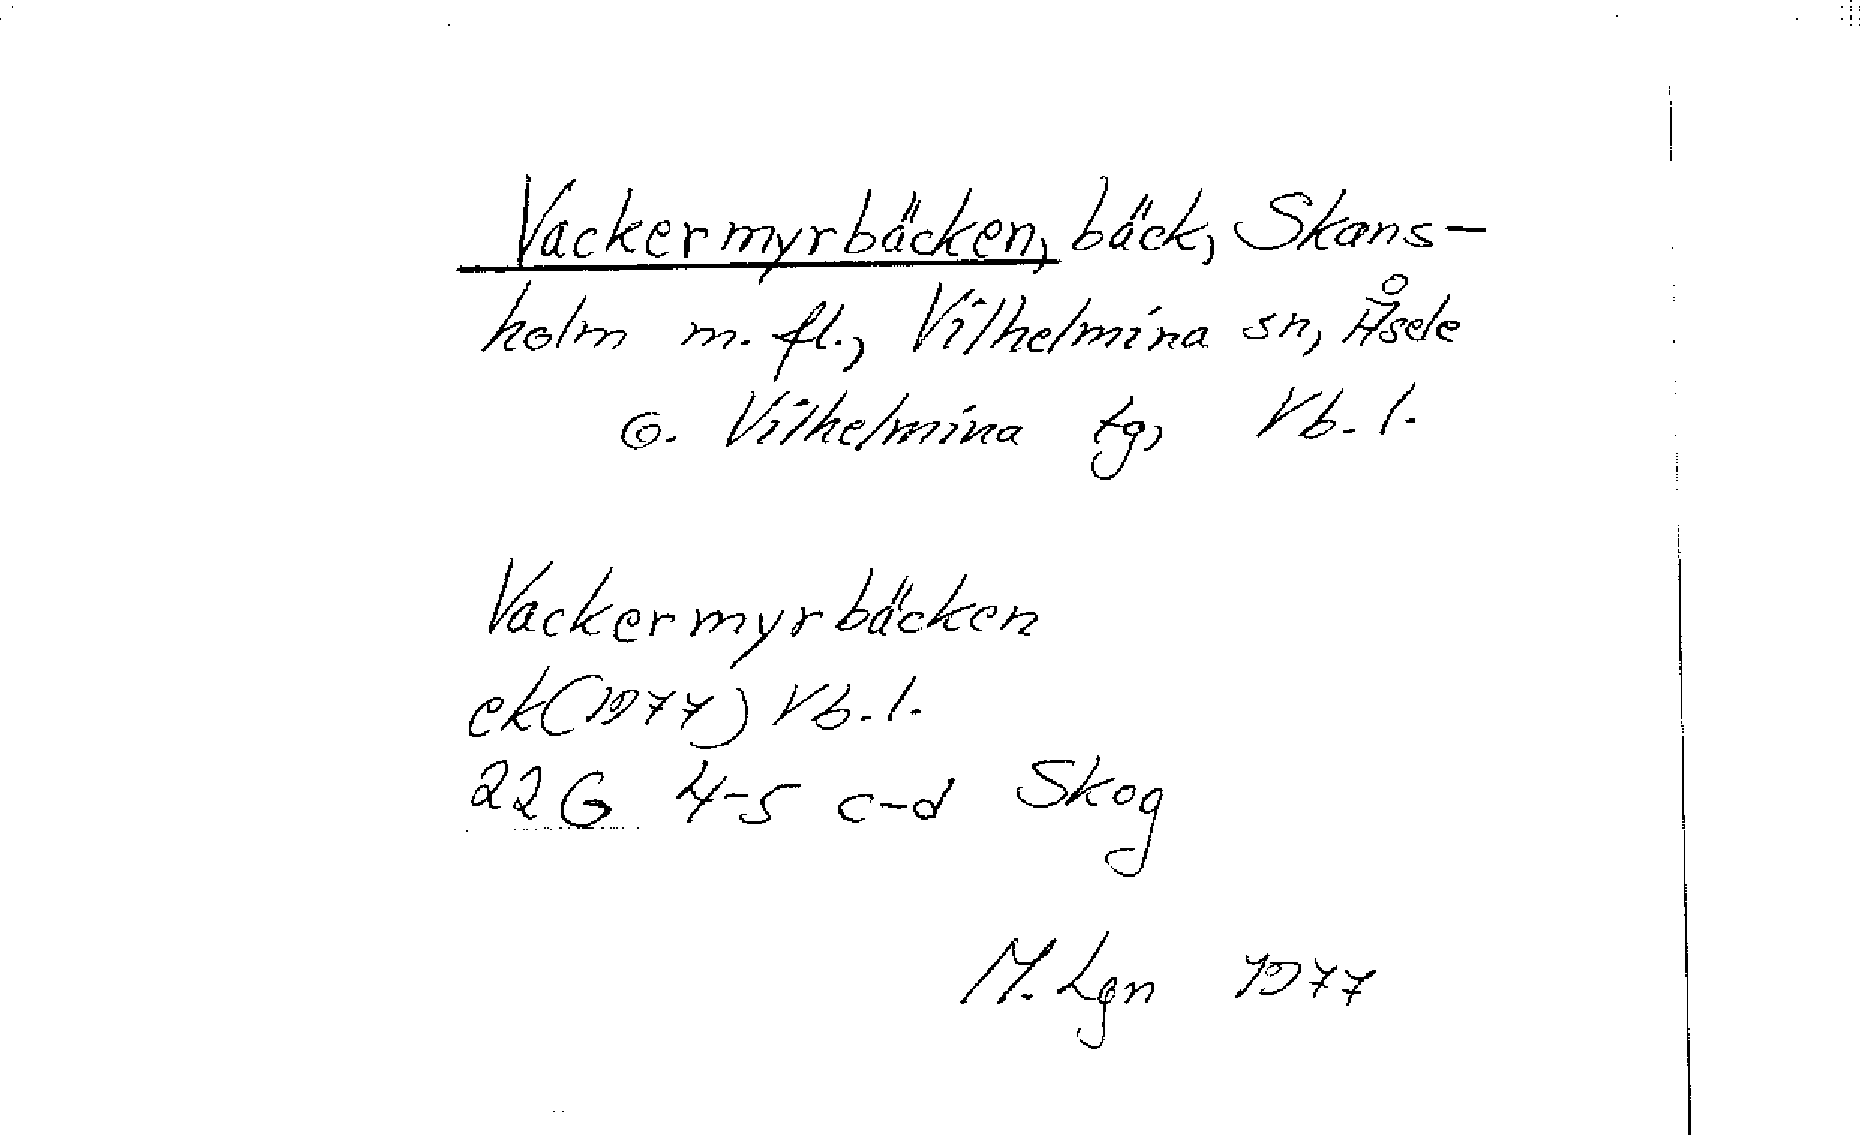 Vackermyrbäcken, bäck, Skans-
holm m. fl., Vilhelmina sn, Åsele
o. Vilhelmina tg, Vb. l.
Vackermyrbäcken
ek (1977) Vb. l.
22 G 4-5 c-d Skog
M. Lgn 1977